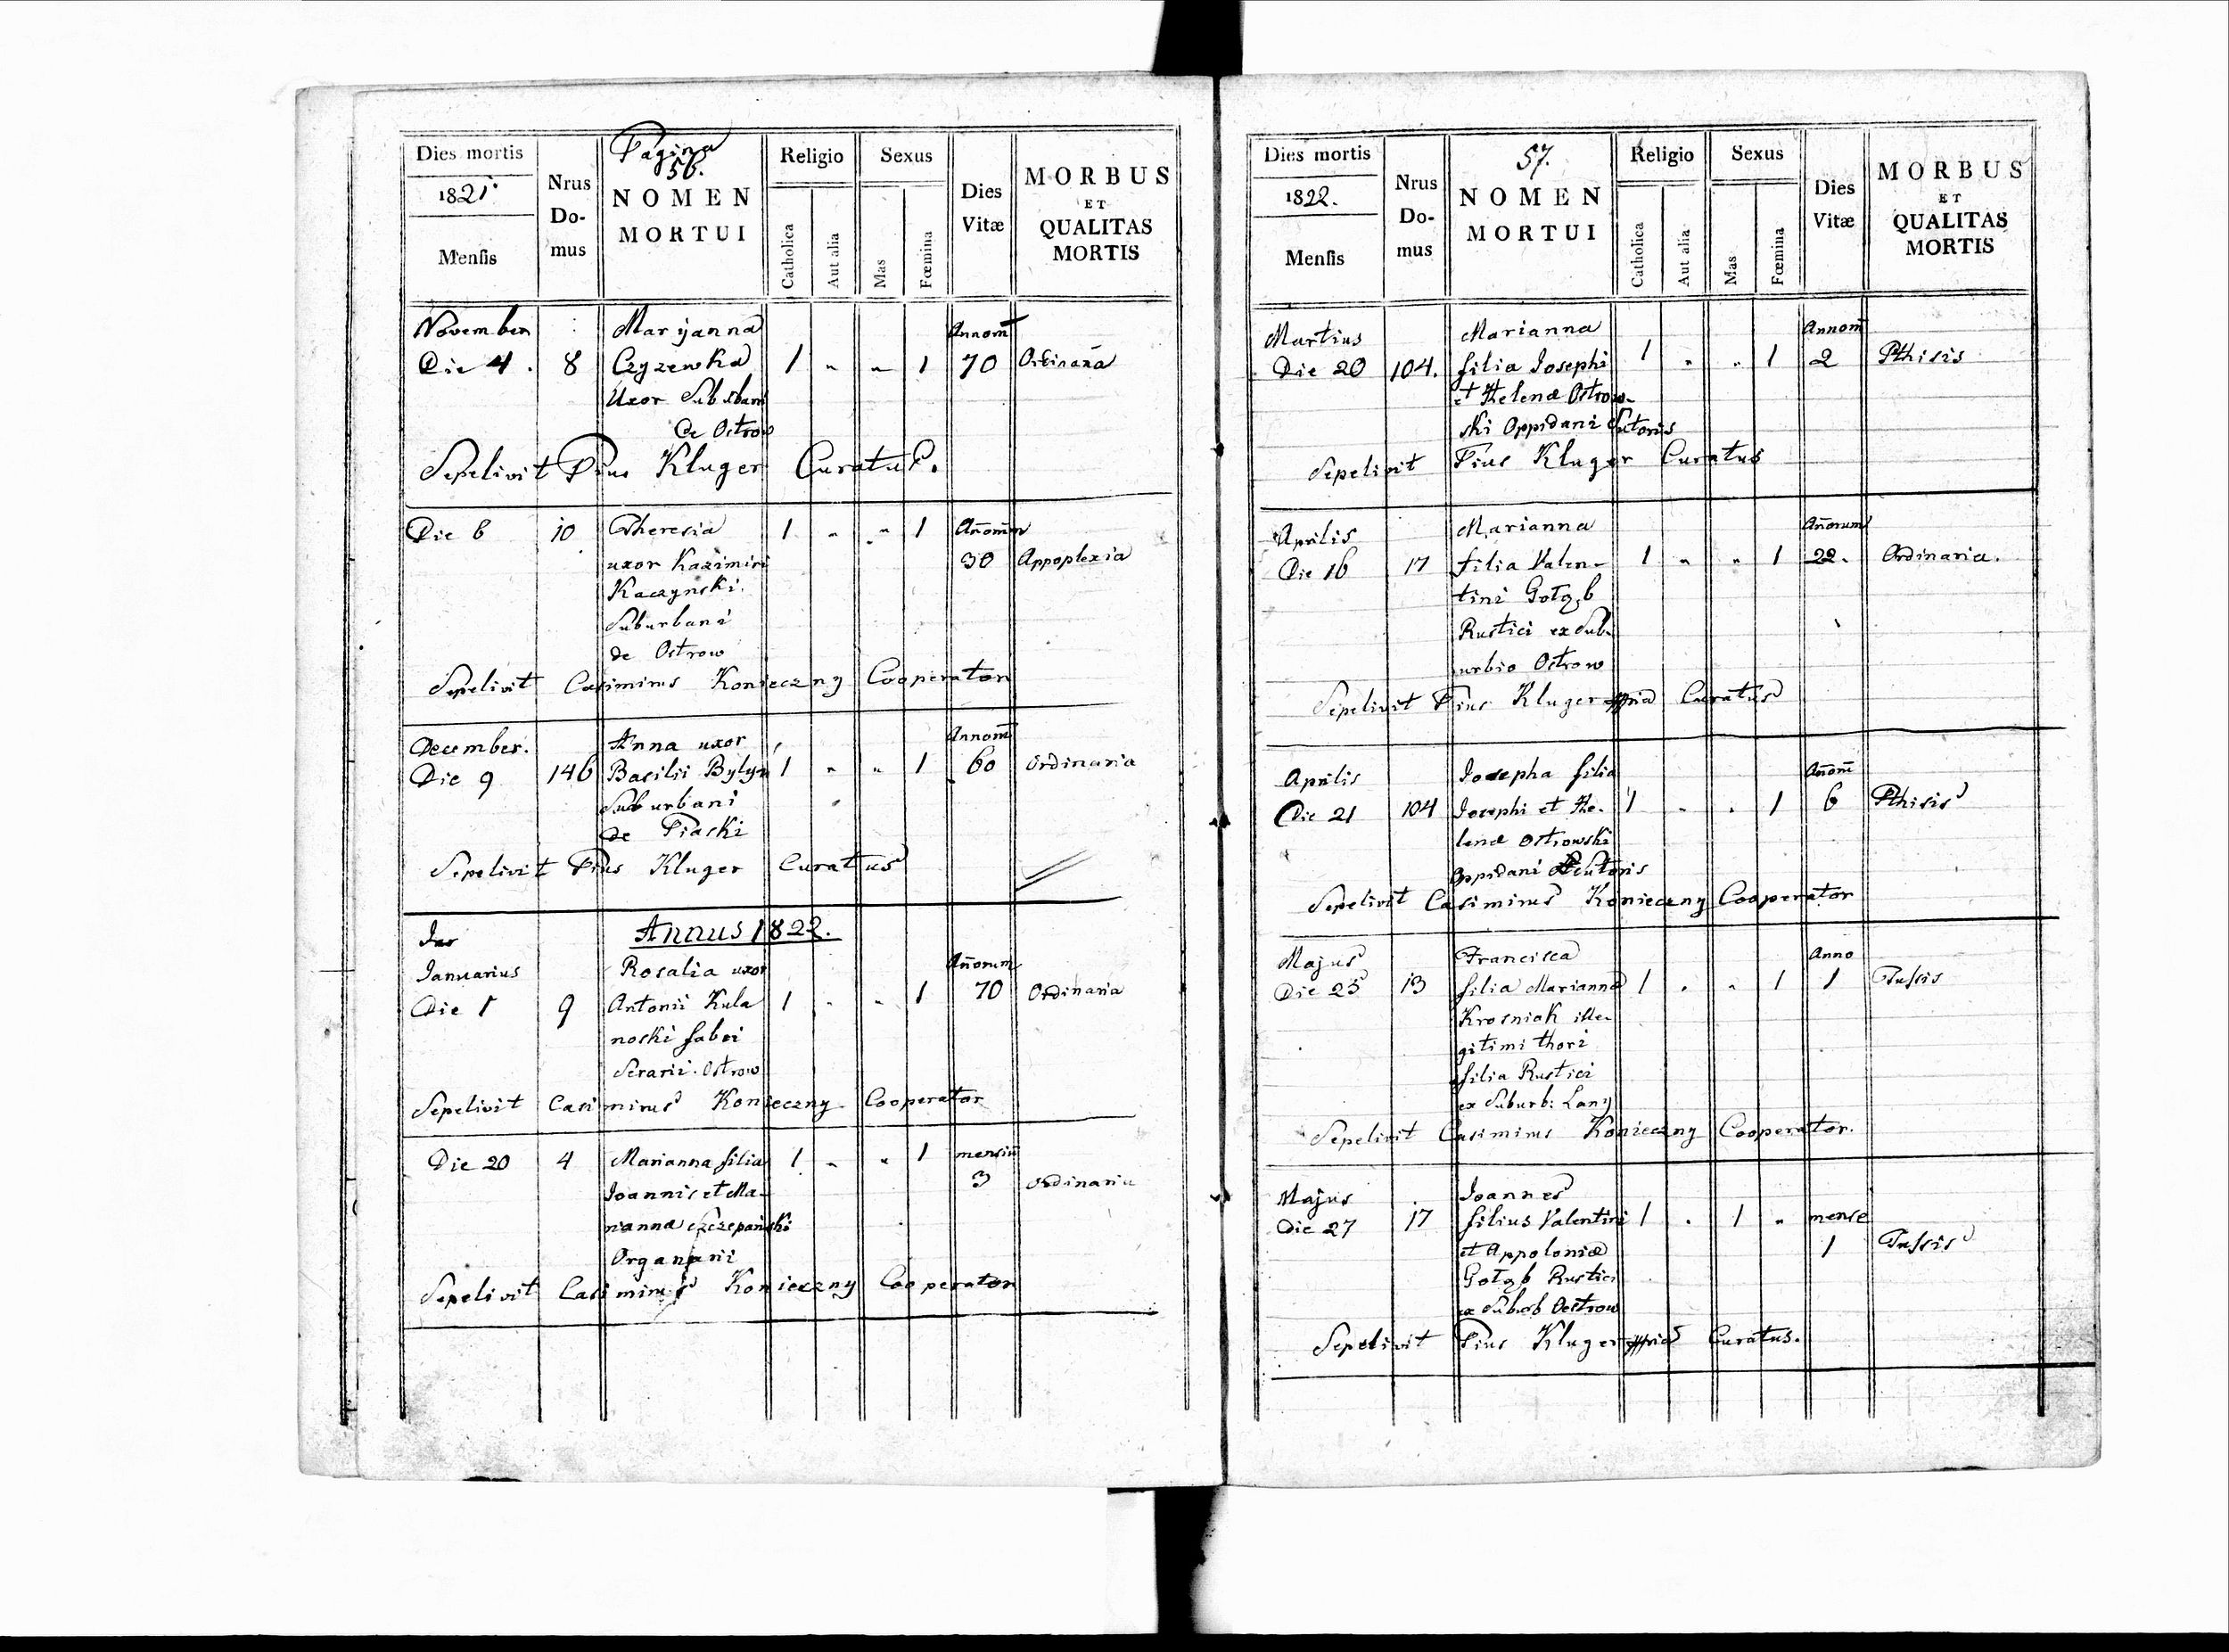 Pagina
56.
Dies mortis
1821.
Mensis
Nrus Do-mus
NOMEN
MORTUI
Religio
Catholica
Aut alia
Sexus
Mas
Fœmina
Dies Vitæ
MORBUS
ET
QUALITAS
MORTIS
November Maryanna Annom
Die 4. 8 Czyzewska 1 " " 1 70 Ordinaria
Uxor Suburbani
de Ostrow
Sepelivit Pius Kluger Curatus.
Die 6 10 Theresia 1 " " 1 Añorum
uxor Kazimiri 30 Appoplexia
Kaczynski.
Suburbani
de Ostrow
Sepelivit Casimirus Konieczny Cooperator
December. Anna uxor Annom
Die 9 146 Basilii Bylyn 1 " " 1 60 Ordinaria
Suburbani
de Piaski
Sepelivit Pius Kluger Curatus
Annus 1822.
Januarius Rosalia uxor Añorum
Die 1 9 Antonii Kula 1 " " 1 70 Ordinaria
noski fabri
Serarii. Ostrow
Sepelivit Casimirus Konieczny Cooperator
Die 20 4 Marianna filia 1 " " 1 mensiu
Joannis et Ma- 3 Ordinaria
rianna Szczepański
Organarii
Sepelivit Casimirus Konieczny Cooperator
57.
Dies mortis
1822.
Mensis
Nrus Do-mus
NOMEN
MORTUI
Religio
Catholica
Aut alia
Sexus
Mas
Fœmina
Dies Vitæ
MORBUS
ET
QUALITAS
MORTIS
Martius Marianna Annom
Die 20 104. filia Josephi 1 " " 1 2 Pthisis
et Helenæ Ostrow-
ski Oppidani Sutoris
Sepelivit Pius Kluger Curatus
Aprilis Marianna Añorum
Die 16 17 filia Valen- 1 " " 1 22. Ordinaria.
tini Gołąb
Rustici ex Sub-
urbio Ostrow
Sepelivit Pius Kluger mpria Curatus
Aprilis Josepha filia Añom
Die 21 104 Josephi et He- 1 " " 1 6 Pthisis
lenæ Ostrowski
Oppidani Sutoris
Sepelivit Casimirus Konieczny Cooperator
Majus Francisca Anno
Die 25 13 filia Marianna 1 " " 1 1 Tussis
Krosniak ille-
gitimi thori
filia Rustici
ex Suburb: Lany
Sepelivit Casimirus Konieczny Cooperator.
Majus Joannes
Die 27 17 filius Valentini 1 " 1 " mense
et Appoloniæ 1 Tussis
Gołąb Rustici
ex Suburb Ostrow
Sepelivit Pius Kluger mpria Curatus.